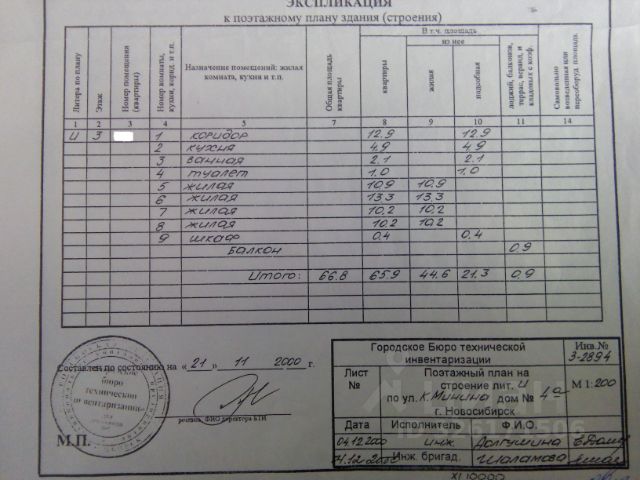 ЭКСПЛИКАЦИЯ
к поэтажному плану здания (строения)
Литера по плану
Этаж
Номер помещения (квартиры)
Номер комнаты, кухни, корид. и т.п.
Назначение помещений: жилая комната, кухня и т.п.
Общая площадь квартиры
В т.ч. площадь
из нее
квартиры
жилая
подсобная
лоджий, балконов, террас, веранд, и кладовых с коэф.
Самовольно возведенная или переоборуд. площадь
1 2 3 4 5 7 8 9 10 11 14
И 3 1 коридор 12.9 12.9
2 кухня 4.9 4.9
3 ванная 2.1 2.1
4 туалет 1.0 1.0
5 жилая 10.9 10.9
6 жилая 13.3 13.3
7 жилая 10.2 10.2
8 жилая 10.2 10.2
9 шкаф 0.4 0.4
Балкон 0.9
Итого: 66.8 65.9 44.6 21.3 0.9
Составлен по состоянию на «21» 11 2000 г.
роспись, ФИО директора БТИ
бюро
технической
инвентаризации
М.П.
Городское Бюро технической инвентаризации
Инв.№
3-2894
Лист №
Поэтажный план на
строение лит. И
по ул. К. Минина дом № 4а
г. Новосибирск
М 1:200
Дата Исполнитель Ф.И.О.
04.12.2000 инж Долгушина
04.12.2000 Инж. бригад. Шаламова